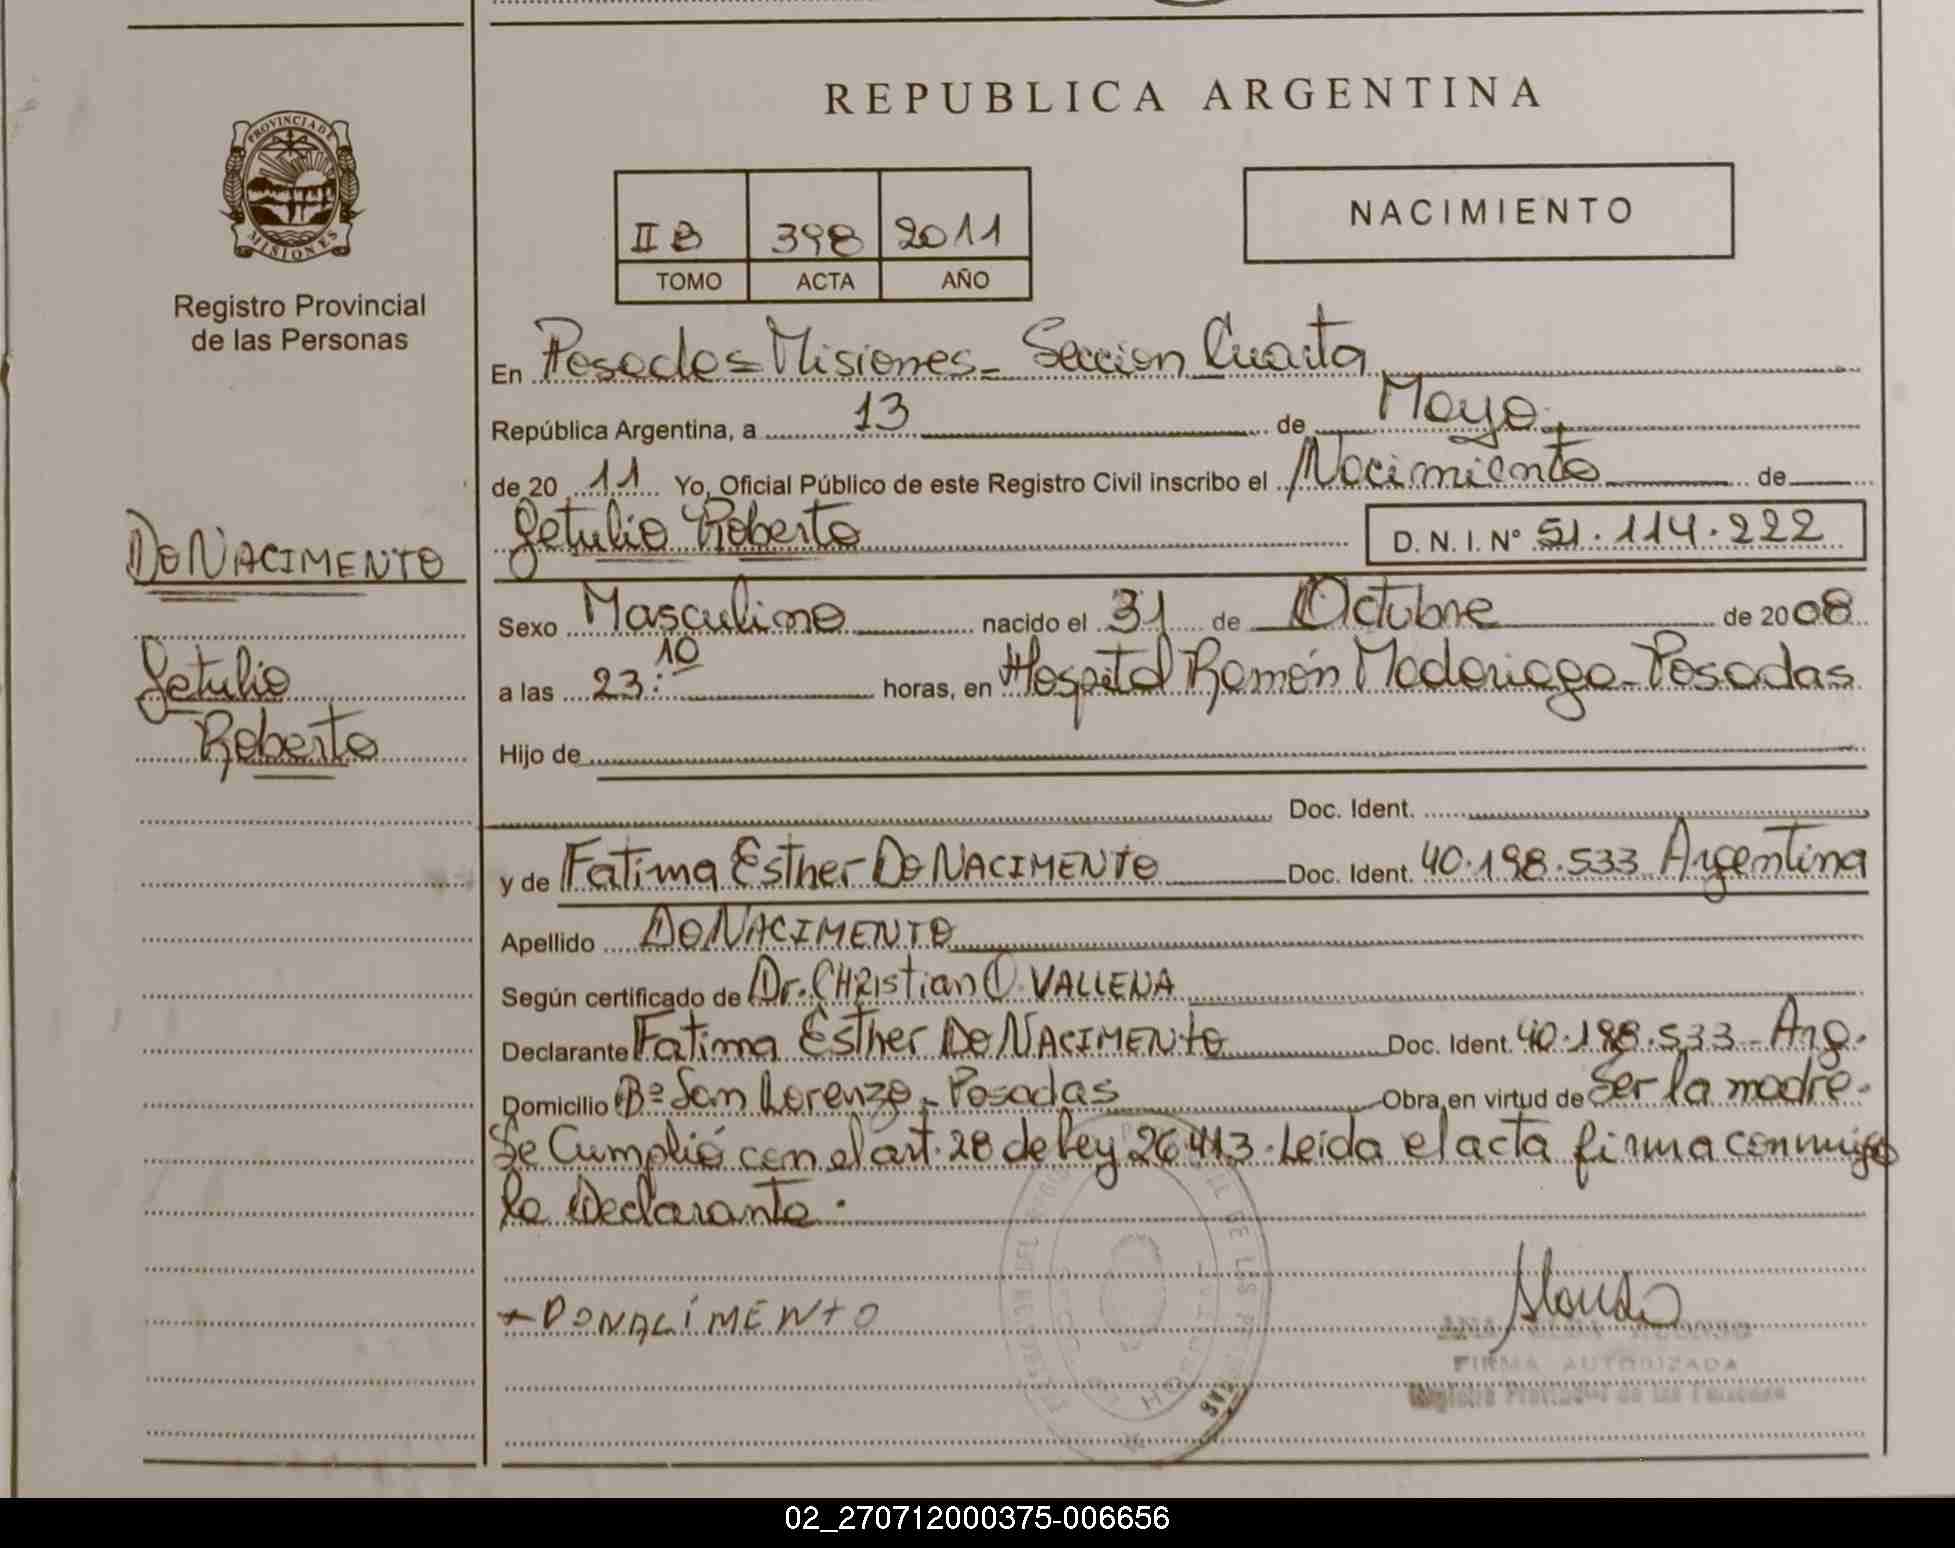 REPUBLICA ARGENTINA
PROVINCIA DE
MISIONES
Registro Provincial
de las Personas
II B 398 2011
TOMO ACTA AÑO
NACIMIENTO
En Posadas Misiones - Seccion Cuarta
República Argentina, a 13 de Mayo
de 20 11 Yo, Oficial Público de este Registro Civil inscribo el Nacimiento de
Getulio Roberto D. N. I. N° 51.114.222
DO NACIMENTO
Getulio
Roberto
Sexo Masculino nacido el 31 de Octubre de 2008
a las 23:10 horas, en Hospital Ramón Madariaga - Posadas
Hijo de
Doc. Ident.
y de Fatima Esther DO NACIMENTO Doc. Ident. 40.198.533 Argentina
Apellido DO NACIMENTO
Según certificado de Dr. CHRistian O. VALLENA
Declarante Fatima Esther DO NACIMENTO Doc. Ident. 40.198.533 - Arg.
Domicilio Bº San Lorenzo - Posadas Obra en virtud de Ser la madre.
Se Cumplió con el art. 28 de ley 26.413. Leida el acta firma conmigo
la Declarante.
DONACIMENTO
FIRMA AUTORIZADA
Registro Provincial de las Personas
02_270712000375-006656